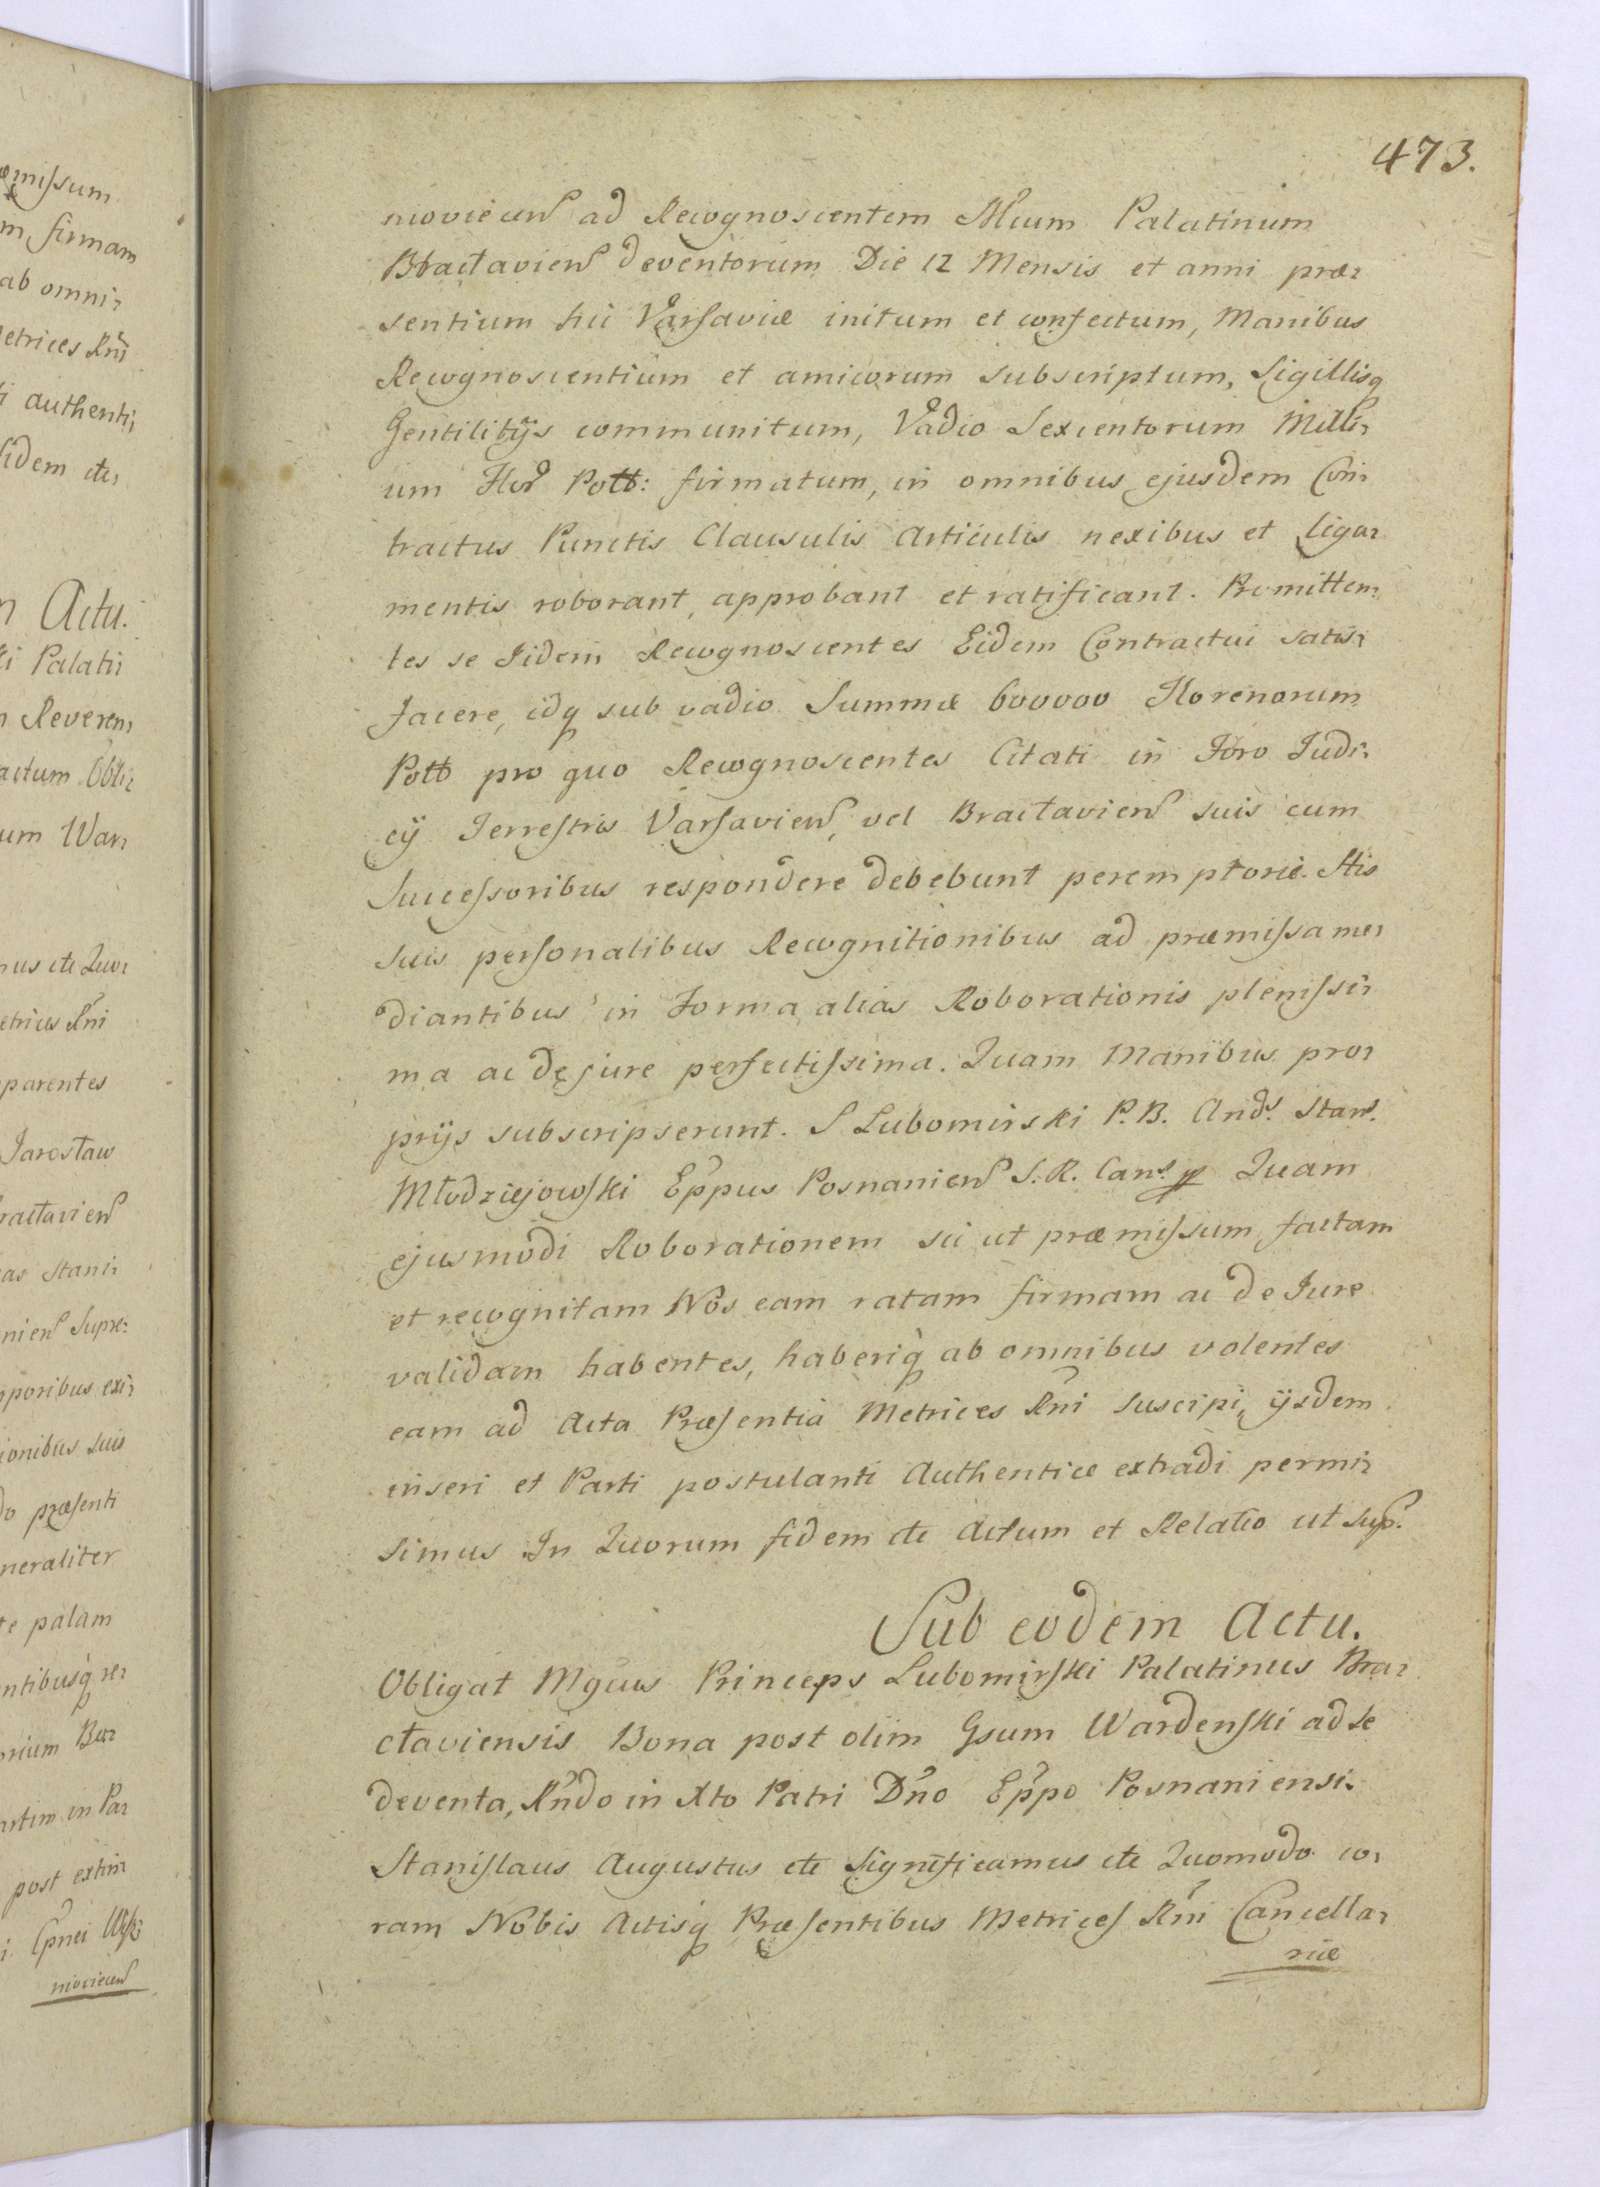 473.
movieceñ ad Recognoscentem Mcum Palatinum
Bractavieñ deventorum Die 12 Mensis et anni præ-
sentium hic Varsaviæ initum et confectum, Manibus
Recognoscentium et amicorum subscriptum, Sigillisq
Gentilitijs communitum, Vadio Sexcentorum Milli-
um Flor Poll: firmatum, in omnibus ejusdem Con-
tractus Punctis Clausulis Articulis nexibus et liga-
mentis roborant, approbant et ratificant. Promitten-
tes se Iidem Recognoscentes Eidem Contractui satis-
facere, idq sub vadio Summæ 600000 Florenorum
Poll pro quo Recognoscentes Citati in Foro Judi-
cij Terrestris Varsavieñ, vel Bractavieñ suis cum
Successoribus respondere debebunt peremptorie. His
suis personalibus Recognitionibus ad præmissa me-
diantibus in Forma alias Roborationis plenissi-
ma ac de jure perfectissima. Quam Manibus pro-
prijs subscripserunt. S Lubomirski P.B. Ands. Stans.
Młodziejowski Eppus Posnanieñ S.R. Cans. Quam
ejusmodi Roborationem sic ut præmissum factam
et recognitam Nos eam ratam firmam ac de Jure
validam habentes, haberiq ab omnibus volentes
eam ad Acta Præsentia Metrices Rñi suscipi, ijsdem
inseri et Parti postulanti Authentice extradi permi-
simus In Quorum fidem etc Actum et Relatio ut Sup.
Sub eodem Actu.
Obligat Mgcus Princeps Lubomirski Palatinus Bra-
ctaviensis Bona post olim Gsum Wardenski ad se
deventa, Rñdo in Xto Patri Dño Eppo Posnaniensi.
Stanislaus Augustus etc Significamus etc Quomodo co-
ram Nobis Actisq Præsentibus Metrices Rñi Cancella-
riæ